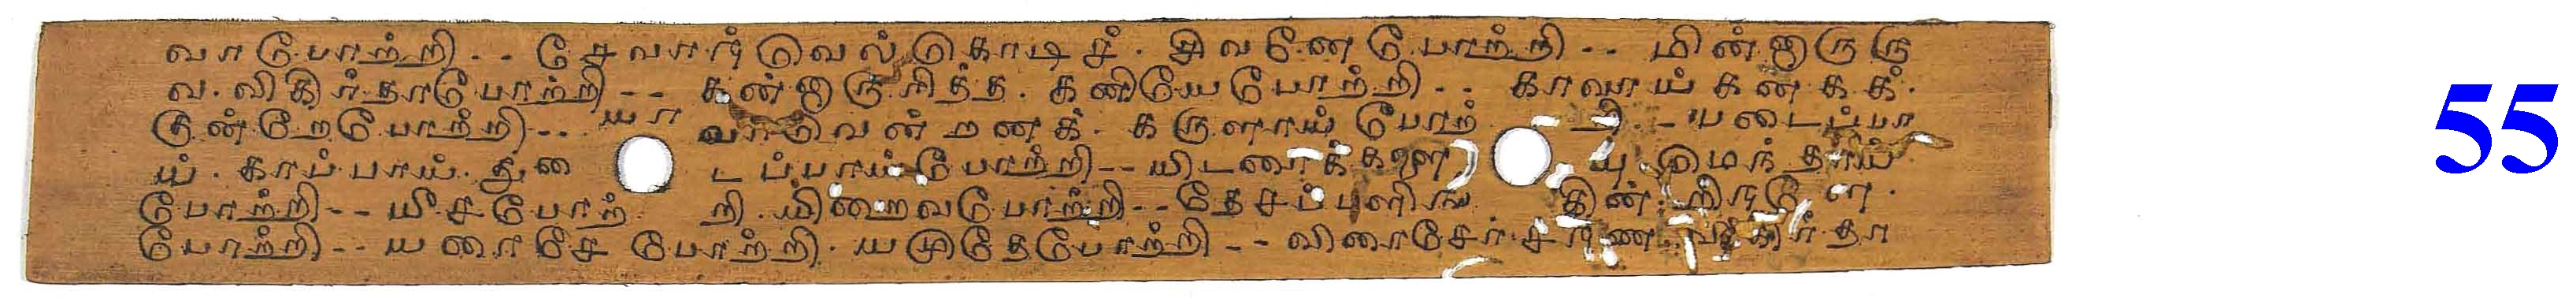 வாபோற்றி - - சேவார் வெல்கொடிச். சிவனேபோற்றி - - மின்னுரு
வ. விகிர்தாபோற்றி - - கன்னுரித்த. கனியேபோற்றி - - காவாய் கனகக்.
குன்றேபோற்றி - - யா வாவென்றனக். கருளாய் போற்றி - - படைப்பா
ய். காப்பாய். துடைப்பாய்போற்றி - - யிடரைக்களையுமெந்தாய்
போற்றி - - யீசபோற்றி. யிறைவபோற்றி - - தேசப்பளிங்கின். றிரளே
போற்றி - - யரைசே போற்றி. யமுதேபோற்றி - - விரைசேர் சரண. விகிர்தா
55